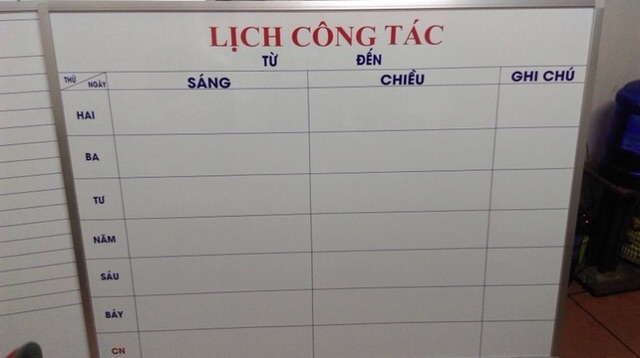 LỊCH CÔNG TÁC
TỪ ĐẾN
THỨ NGÀY SÁNG CHIỀU GHI CHÚ
HAI
BA
TƯ
NĂM
SÁU
BẢY
CN